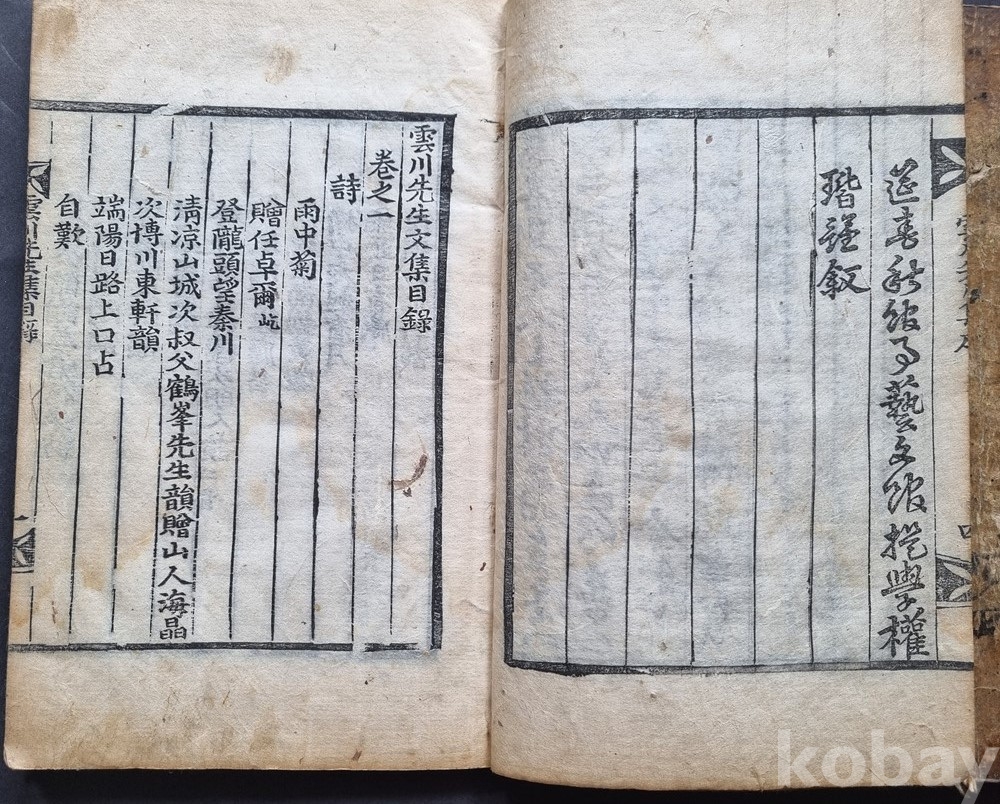 筵春秋館事藝文館提學權
瑎謹叙
雲川先生文集目錄
卷之一
詩
雨中菊
贈任卓爾屹
登隴頭望秦川
淸凉山城次叔父鶴峯先生韻贈山人海晶
次博川東軒韻
端陽日路上口占
自歎
雲川先生集目錄
kobay